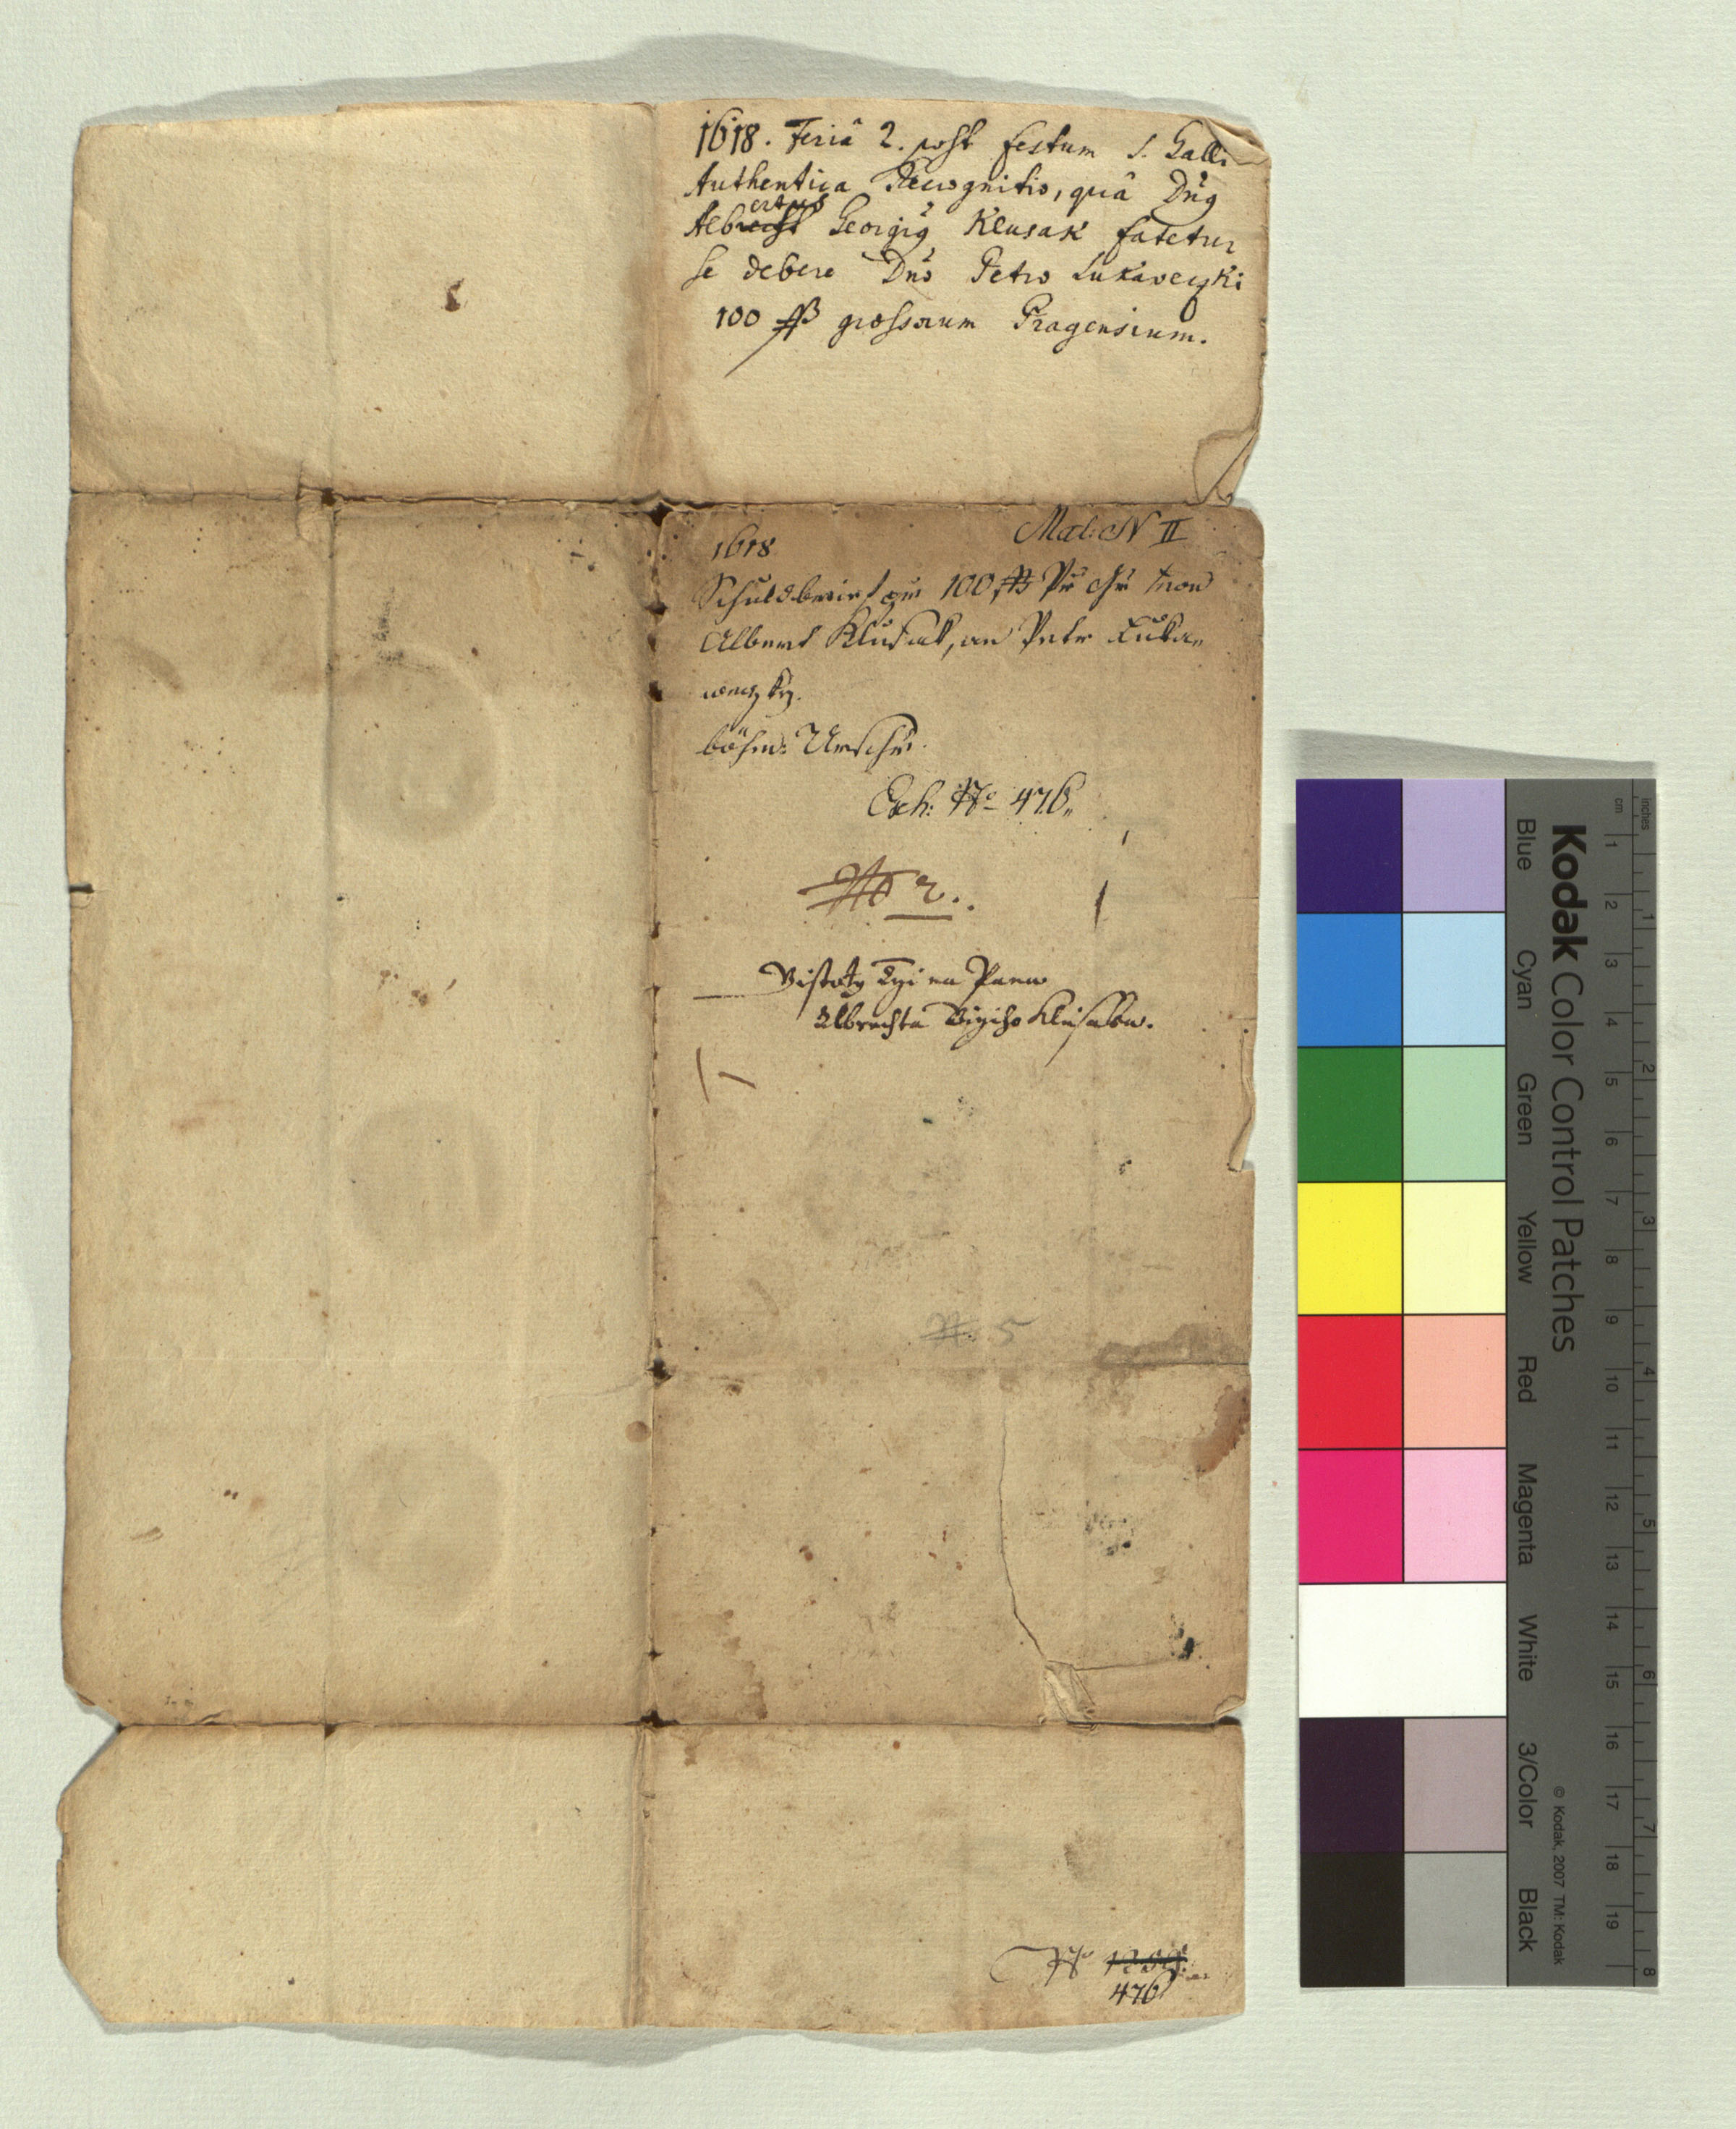 1618. Feriâ 2. post festum S. Galli
Authentica Recognitio, quâ Dn̄9
Albrecht ertus Georgi9 Klusak fatetur
se debere Dn̄o Petro Lukaweczki
100 ß grossorum Pragensium.
Mal: N II
1618
100 ß
Albert Klusak, an Peter Luka„
weczky.
böhm:
Exh: No 476„
No 2.
na Pana
Albrechta Girziho Klusaka.
N. 5
No
476
Kodak Color Control Patches
Blue Cyan Green Yellow Red Magenta White 3/Color Black
© Kodak, 2007 TM: Kodak
cm 1 2 3 4 5 6 7 8 9 10 11 12 13 14 15 16 17 18 19
inches 1 2 3 4 5 6 7 8